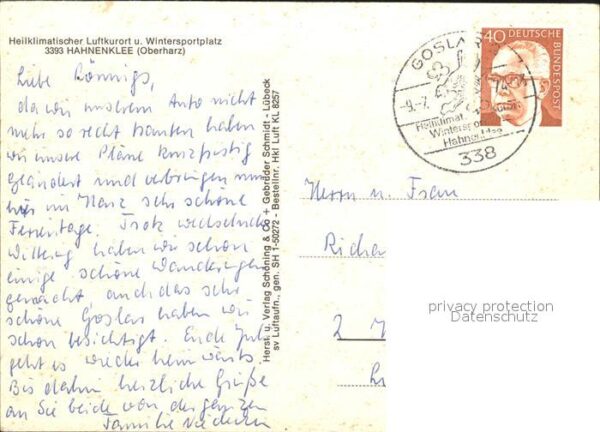 Heilklimatischer Luftkurort u. Wintersportplatz
3393 HAHNENKLEE (Oberharz)
Liebe Rönnigs,
da wir unserem Auto nicht
mehr so recht trauten haben
wir unsere Pläne kurzfristig
geändert und verbringen nun
hier im Harz sehr schöne
Ferientage. Trotz wechselnder
Witterung haben wir schon
einige schöne Wanderungen
gemacht, auch das sehr
schöne Goslar haben wir
schon besichtigt. Ende Juli
geht es wieder heimwärts.
Bis dahin herzliche Grüße
an Sie beide von der ganzen
Familie
Herst. u. Verlag Schöning & Co + Gebrüder Schmidt - Lübeck
sv Luftaufn., gen. SH 1-50272 - Bestellnr. Hkl Luft KL 8257
GOSLAR
-9.-7.
Heilklimat
Wintersport
Hahnenklee
338
40
DEUTSCHE
BUNDESPOST
Herrn u. Frau
Richa
2
privacy protection
Datenschutz